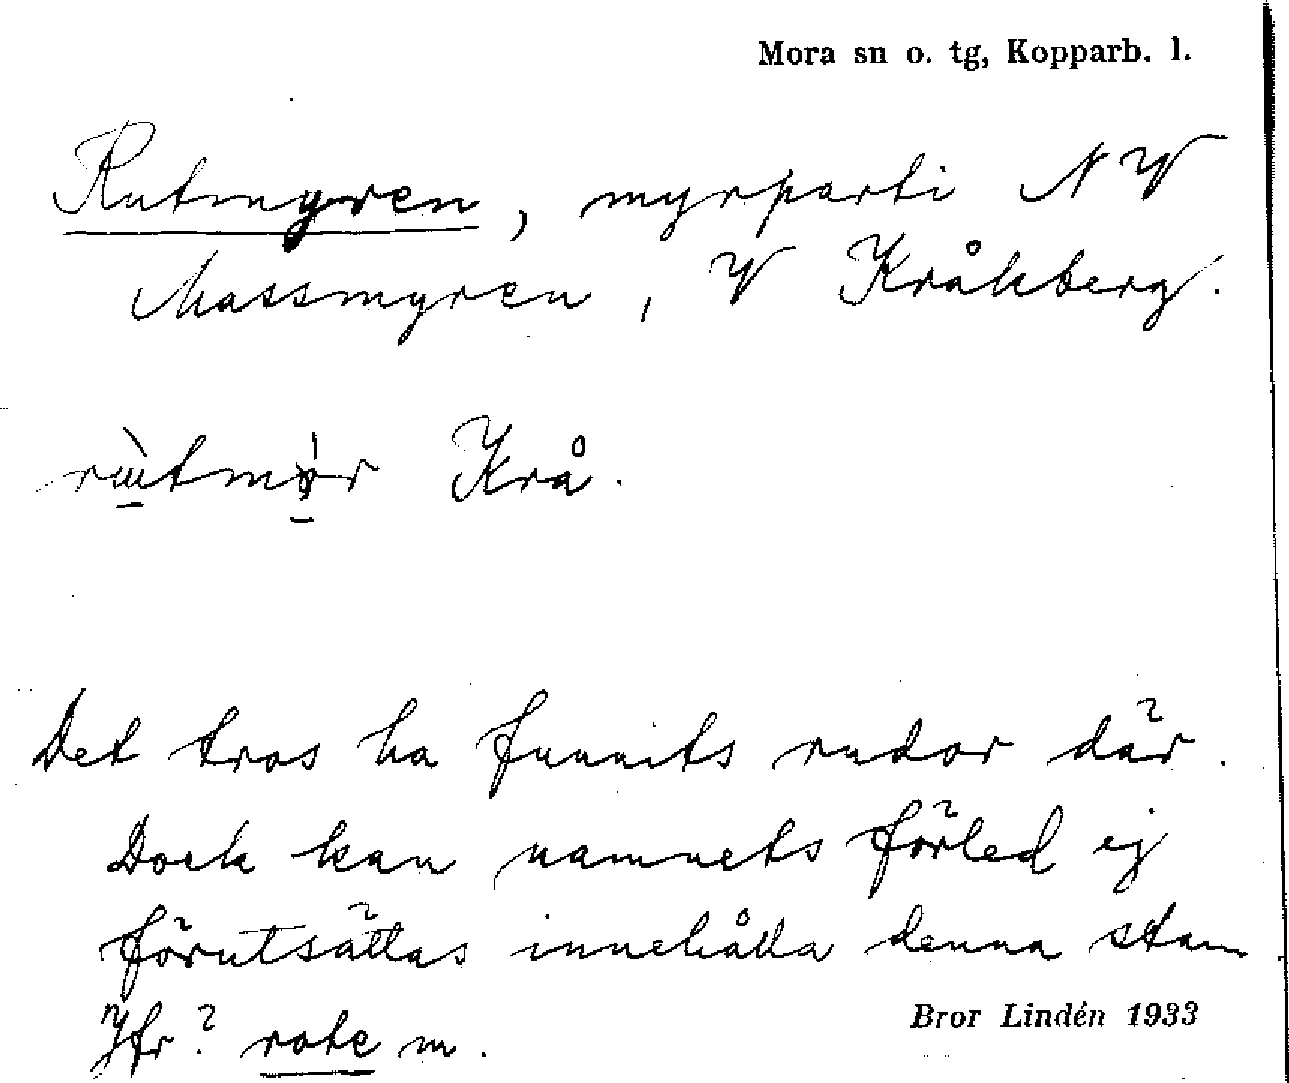 Mora sn o. tg, Kopparb. l.
Rutmyren, myrparti NV
Massmyren, V Kråkberg.
Krå.
Det tros ha funnits rudor där.
Dock kan namnets förled ej
förutsättas innehålla denna stam
Jfr? rote m.
Bror Lindén 1933